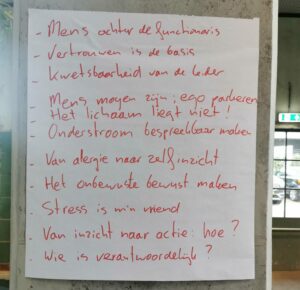 - Mens achter de functionaris
- Vertrouwen is de basis
- Kwetsbaarheid van de leider
- Mens mogen zijn; ego parkeren
- Het lichaam liegt niet!
- Onderstroom bespreekbaar maken
- Van alergie naar zelfinzicht
- Het onbewuste bewust maken
- Stress is mijn vriend
- Van inzicht naar actie: hoe?
- Wie is verantwoordelijk?